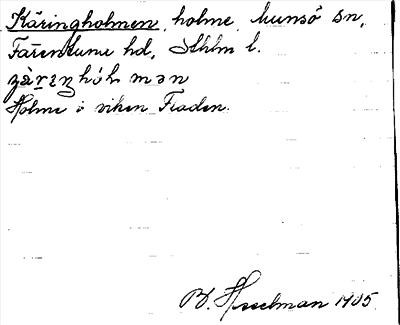 Käringholmen, holme, Munsö sn,
Färentuna hd, Sthlm l.
Holme i viken Fladen.
B. Hesselman 1905